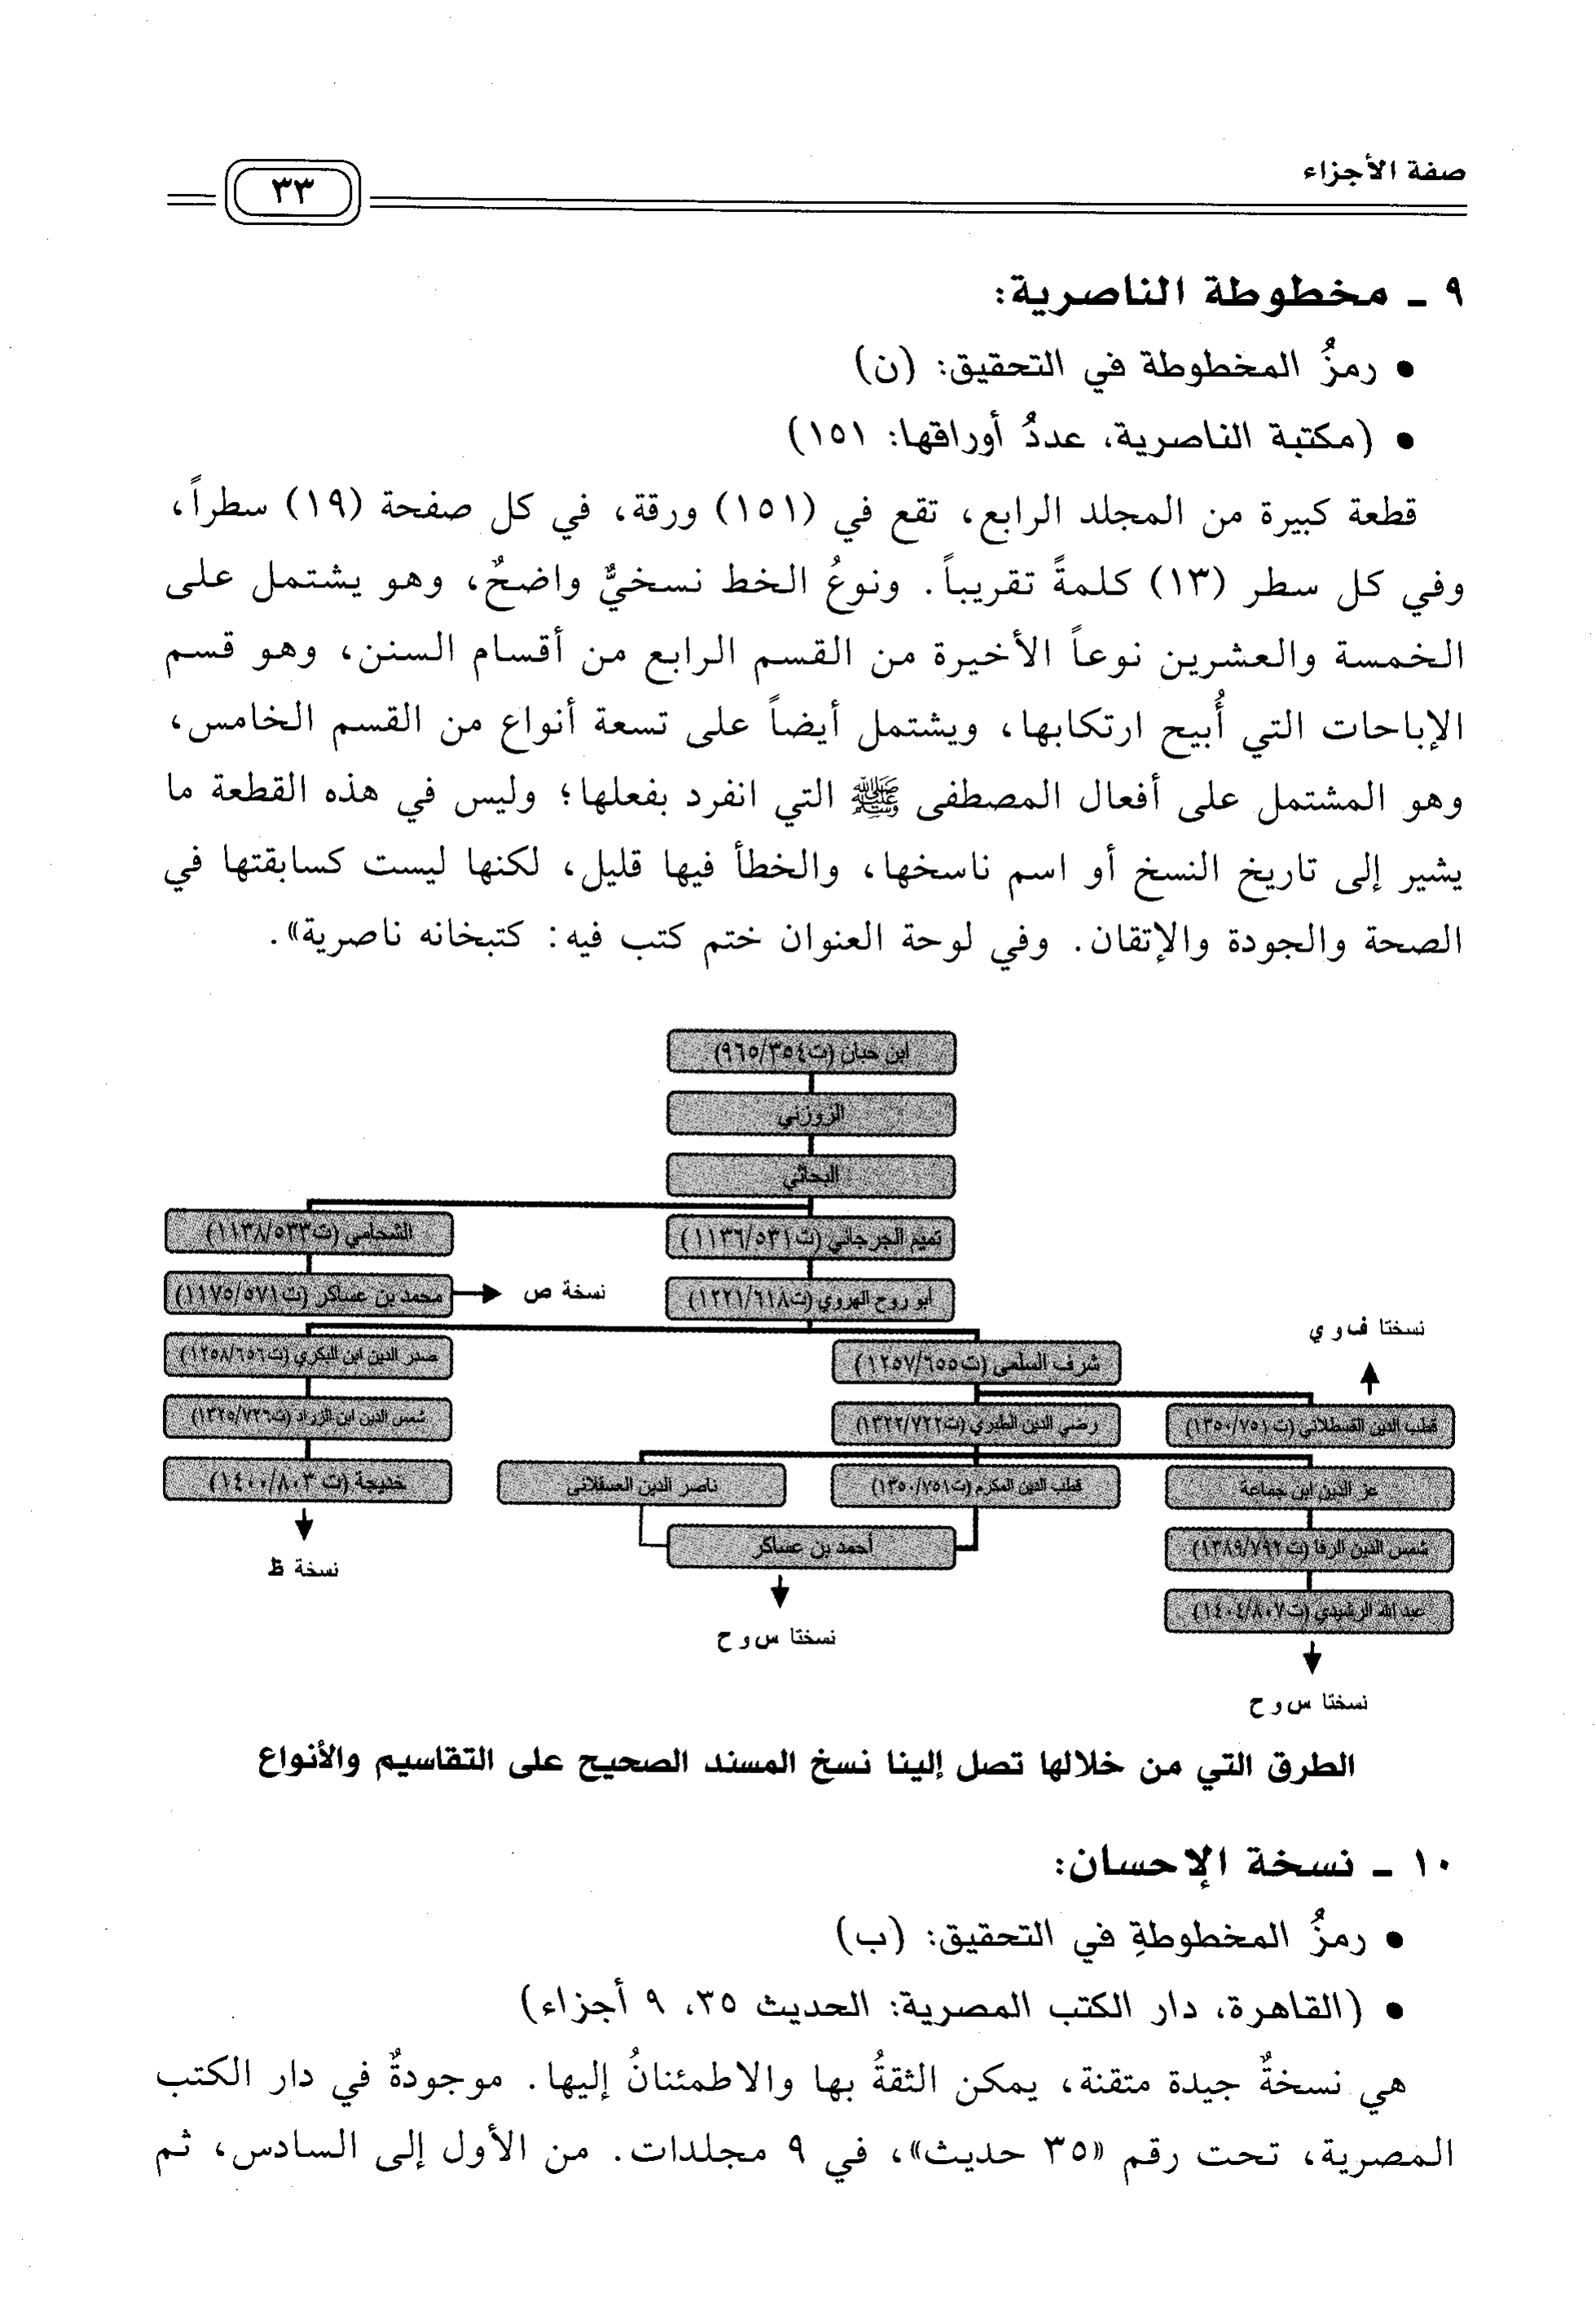 صفة الأجزاء
٣٣
٩ ـ مخطوطة الناصرية:
• رمزُ المخطوطة في التحقيق: (ن)
• (مكتبة الناصرية، عددُ أوراقها: ١٥١)
قطعة كبيرة من المجلد الرابع، تقع في (١٥١) ورقة، في كل صفحة (١٩) سطراً،
وفي كل سطر (١٣) كلمةً تقريباً. ونوعُ الخط نسخيٌّ واضحٌ، وهو يشتمل على
الخمسة والعشرين نوعاً الأخيرة من القسم الرابع من أقسام السنن، وهو قسم
الإباحات التي أُبيح ارتكابها، ويشتمل أيضاً على تسعة أنواع من القسم الخامس،
وهو المشتمل على أفعال المصطفى ﷺ التي انفرد بفعلها؛ وليس في هذه القطعة ما
يشير إلى تاريخ النسخ أو اسم ناسخها، والخطأ فيها قليل، لكنها ليست كسابقتها في
الصحة والجودة والإتقان. وفي لوحة العنوان ختم كتب فيه: كتبخانه ناصرية».
ابن حبان (ت٣٥٤/٩٦٥)
الزوزني
البحاثي
تميم الجرجاني (ت٥٣١/١١٣٦)
الشحامي (ت٥٣٣/١١٣٨)
أبو روح الهروي (ت٦١٨/١٢٢١)
نسخة ص
محمد بن عساكر (ت٥٧١/١١٧٥)
نسختا ف و ي
شرف السلمي (ت٦٥٥/١٢٥٧)
صدر الدين ابن البكري (ت٦٥٦/١٢٥٨)
قطب الدين القسطلاني (ت٧٥١/١٣٥٠)
رضي الدين الطبري (ت٧٢٢/١٣٢٢)
شمس الدين ابن الزراد (ت٧٢٦/١٣٢٥)
عز الدين ابن جماعة
قطب الدين المكرم (ت٧٥١/١٣٥٠)
ناصر الدين العسقلاني
خديجة (ت ٨٠٣/١٤٠٠)
شمس الدين الرفا (ت٧٩٢/١٣٨٩)
أحمد بن عساكر
نسخة ظ
عبد الله الرشيدي (ت٨٠٧/١٤٠٤)
نسختا س و ح
نسختا س و ح
الطرق التي من خلالها تصل إلينا نسخ المسند الصحيح على التقاسيم والأنواع
١٠ ـ نسخة الإحسان:
• رمزُ المخطوطةِ في التحقيق: (ب)
• (القاهرة، دار الكتب المصرية: الحديث ٣٥، ٩ أجزاء)
هي نسخةٌ جيدة متقنة، يمكن الثقةُ بها والاطمئنانُ إليها. موجودةٌ في دار الكتب
المصرية، تحت رقم «٣٥ حديث»، في ٩ مجلدات. من الأول إلى السادس، ثم